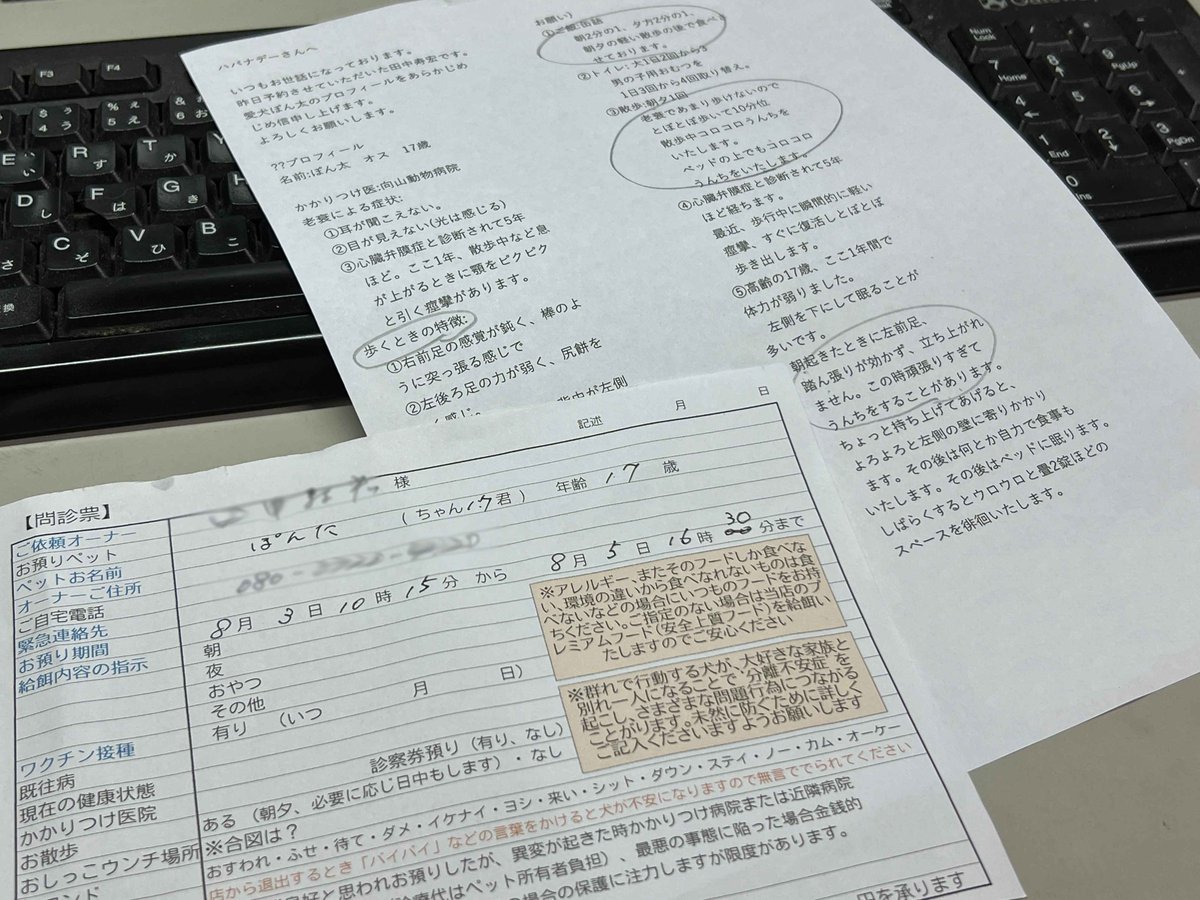 ハバナデーさんへ
いつもお世話になっております。
昨日予約させていただいた田中寿宏です。
愛犬ぽん太のプロフィールをあらかじめ
じめ信申し上げます。
よろしくお願いします。
??プロフィール
名前:ぽん太 オス 17歳
かかりつけ医:向山動物病院
老衰による症状:
①耳が聞こえない。
②目が見えない(光は感じる)
③心臓弁膜症と診断されて5年
ほど。ここ1年、散歩中など息
が上がるときに顎をピクピク
と引く痙攣があります。
歩くときの特徴:
①右前足の感覚が鈍く、棒のよ
うに突っ張る感じで
②左後ろ足の力が弱く、尻餅を
く感じ。
背中が左側
お願い)
①ご飯:缶詰
朝2分の1、夕方2分の1、
朝夕の軽い散歩の後で食べさ
せております。
②トイレ:大1日2回から3
男の子用おむつを
1日3回から4回取り替え。
③散歩:朝夕1回
老衰であまり歩けないので
とぼとぼ歩いて10分位
散歩中コロコロうんちを
いたします。
ベッドの上でもコロコロ
うんちをいたします。
④心臓弁膜症と診断されて5年
ほど経ちます。
最近、歩行中に瞬間的に軽い
痙攣、すぐに復活しとぼとぼ
歩き出します。
⑤高齢の17歳、ここ1年間で
体力が弱りました。
左側を下にして眠ることが
多いです。
朝起きたときに左前足、
踏ん張りが効かず、立ち上がれ
ません。この時頑張りすぎて
うんちをすることがあります。
ちょっと持ち上げてあげると、
よろよろと左側の壁に寄りかかり
ます。その後は何とか自力で食事も
いたします。その後はベッドに眠ります。
しばらくするとウロウロと畳2錠ほどの
スペースを徘徊いたします。
【問診票】
記述 月 日
ご依頼オーナー 様
お預りペット ぽんた (ちゃん・君) 年齢 17 歳
ペットお名前
オーナーご住所 080-
ご自宅電話
緊急連絡先 8月 3日 10時 15分 から 8月 5日 16時 30分まで
お預り期間 朝
給餌内容の指示 夜
おやつ
その他 月 日)
有り (いつ
※アレルギー、またそのフードしか食べな
い、環境の違いから食べなれないものは食
べないなどの場合にいつものフードをお持
ちください。ご指定のない場合は当店のプ
レミアムフード(安全上質フード)を給餌い
たしますのでご安心ください
※群れで行動する犬が、大好きな家族と
別れ一人になることで“分離不安症”を
起こし、さまざまな問題行為につながる
ことがります。未然に防ぐために詳しく
ご記入くださいますようお願いします
ワクチン接種
既往病 診察券預り(有り、なし)
現在の健康状態 ある (朝夕、必要に応じ日中もします)・なし
かかりつけ医院 ※合図は?
お散歩 おすわれ・ふせ・待て・ダメ・イケナイ・ヨシ・来い・シット・ダウン・ステイ・ノー・カム・オーケー
おしっこウンチ場所 店から退出するとき「バイバイ」などの言葉をかけると犬が不安になりますので無言ででられてください
良好と思われお預りしたが、異変が起きた時かかりつけ病院または近隣病院
診療代はペット所有者負担)、最悪の事態に陥った場合金銭的
の場合の保護に注力しますが限度があります。
円を承ります
F3
F4
Num Lock
7 Home
8
4
5
6
1 End
2
3 PgDn
0 Ins
E い
R す
T か
D し
F は
G き
H く
C そ
V ひ
B こ